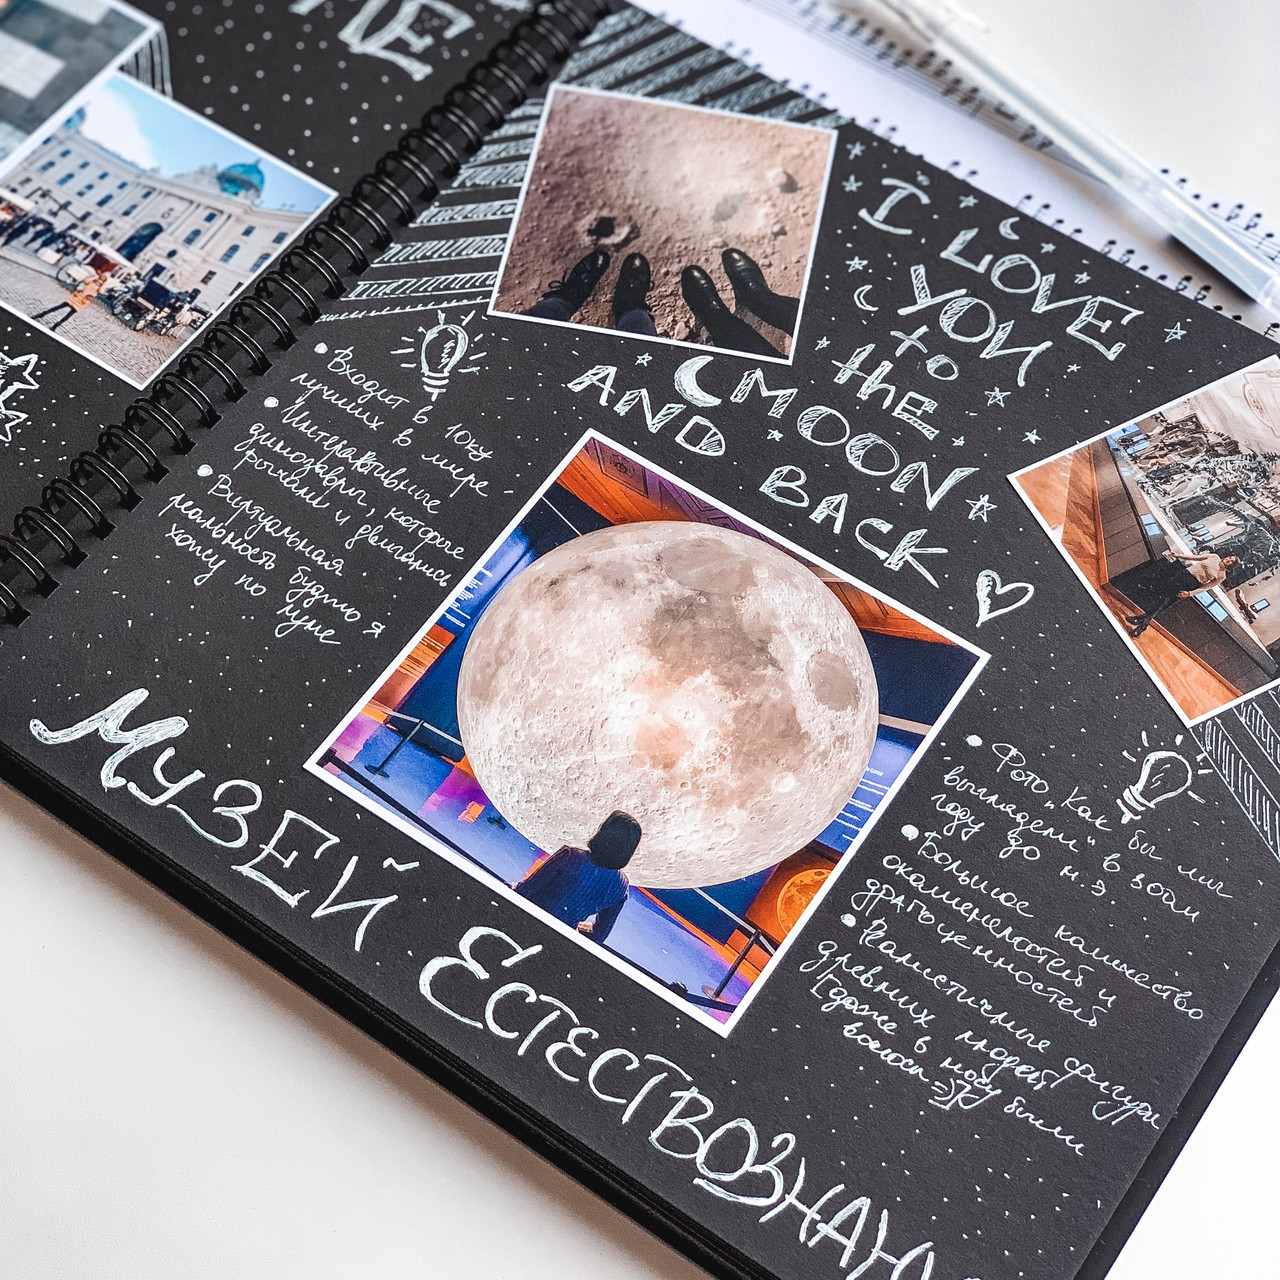 I LOVE
YOU
to
the
MOON
AND BACK
• Входит в 10ку
лучших в мире
• Интерактивные
динозавры, которые
рычали и двигались
• Виртуальная
реальность будто я
хожу по луне
• Фото "Как бы мы
выглядели" в
году до н.э
• Большое количество
окаменелостей и
драгоценностей
• Реалистичные фигуры
древних людей
[даже в носу были
волосы =)]
МУЗЕЙ ЕСТЕСТВОЗНАН